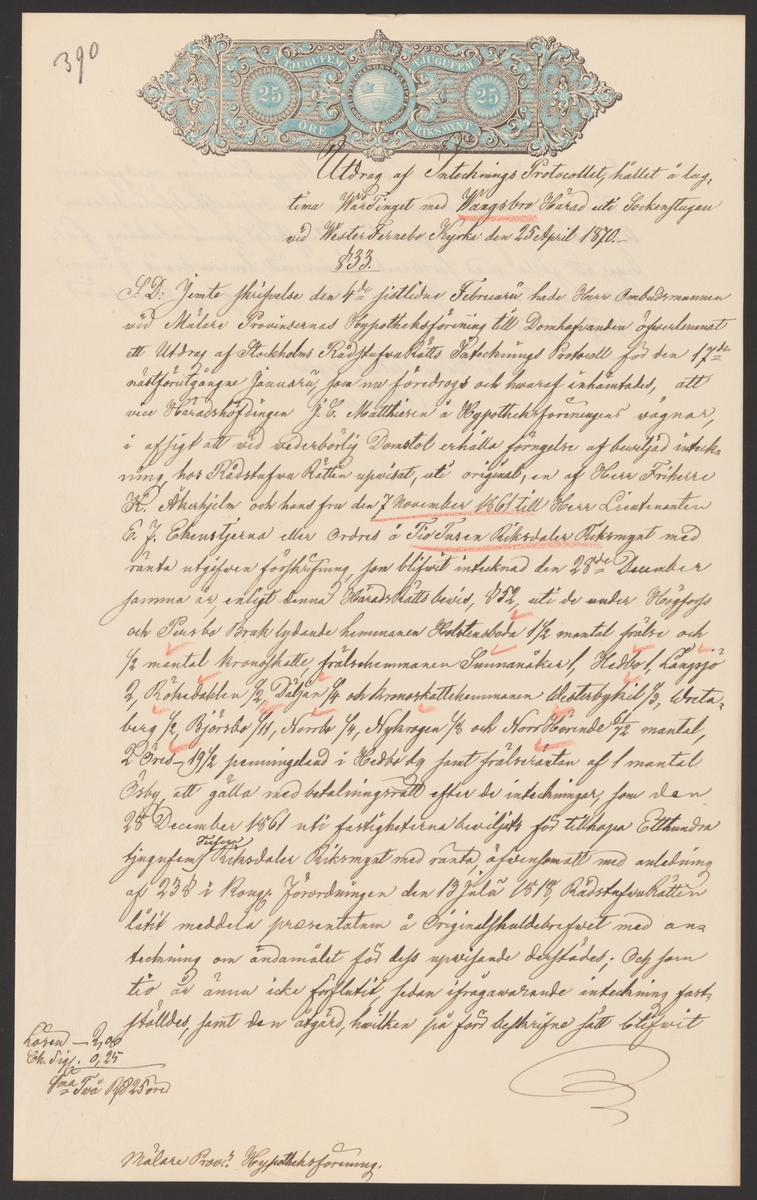 390
TJUGUFEM TJUGUFEM
25 25
ÖRE RIKSMYNT
Utdrag af Intecknings Protocollet, hållet å lag-
tima WårTinget med Wagnsbro Härad uti Sockenstugan
vid Wester Fernebo Kyrka den 25 April 1870.
§ 33.
S. D: Jemte skrifvelse den 4de sistlidne Februarii hade Herr Ombudsmannen
vid Mälare Provinsernas Hypotheksförening till Domhafvanden öfverlemnat
ett Utdrag af Stockholms RådstufvuRätts Intecknings Protocoll för den 17de
nästförutgångne Januarii, som nu föredrogs och hwaraf inhämtades, att
vice Häradshöfdingen J. C. Matthiesen å Hypotheksföreningens vägnar,
i afsigt att vid vederbörlig Domstol erhålla förnyelse af beviljad inteck-
ning, hos Rådstufvu Rätten upvisat, uti original, en af Herr Friherre
K. Åkerhjelm och hans fru den 7 November 1861 till Herr Lieutenanten
E. J. Ekenstjerna eller ordres å Tio Tusen Riksdaler Riksmynt med
ränta utgifven förskrifning, som blifvit intecknad den 28de December
samma år, enligt denna HäradsRätts bevis, § 52, uti de under Högfors
och Persbo Bruk lydande hemmanen Holstensboda 1 1/2 mantal frälse och
1/2 mantal kronoskatte, frälsehemmanen Sunnanåker 1, Hedbo 1, Långsjö
2, 1/2, 1/4 och kronoskattehemmanen Westerbykil 1/3, Wreta-
berg 1/2, Björsbo 1/4, Norrbo 1/4, 1/8 och NorrHörende mantal,
2 Öres 19 1/2 penningeland i Hedbo by samt frälseräntan af 1 mantal
Ösby, att gälla med betalningsrätt efter de inteckningar, som den
28 December 1861 uti fastigheterna beviljats för tillhopa Etthundra
tjugufem Tusen Riksdaler Riksmynt med ränta, äfvensom att med anledning
af 23 § i Kongl. Förordningen den 13 Julii 1818, RådstufvuRätten
låtit meddela præsentatum å Originalskuldebrefvet med an-
teckning om ändamålet för dess upvisande derstädes; Och som
tio år ännu icke förflutit, sedan ifrågawarande inteckning fast-
stäldes, samt den åtgärd, hwilken på förr beskrifne sätt blifwit
Lösen — 2,00
Ch. Sig. 0,25
Sma Två Rd 25 öre
Mälare Prov:s Hypotheksförening.